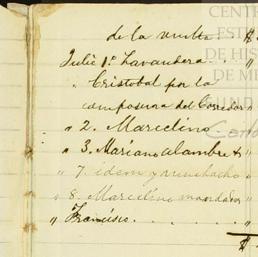 de la vuelta $
Julio 1º Lavandera
" Cristobal por la
composura del Corredor "
" 2. Marcelino "
" 3. Mariano alambre &
" 7. idem y muchacho "
" 8. Marcelino mandados "
" Francisco "
$
CENTR
DE HIS
DE ME